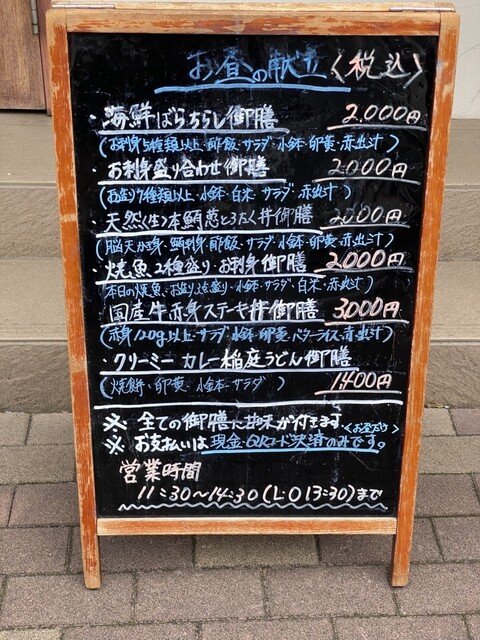 お昼の献立〈税込〉
・海鮮ばらちらし御膳 2.000円
(お刺身5種類以上・酢飯・サラダ・小鉢・卵黄・赤出汁)
・お刺身盛り合わせ御膳 2.000円
(お造り7種類以上・小鉢・白米・サラダ・赤出汁)
天然(生)本鮪葱とろたく丼御膳 2.000円
(脳天かま身・鯛刺身・酢飯・サラダ・小鉢・卵黄・赤出汁)
・焼魚2種盛り・お刺身御膳 2.000円
(本日の焼魚・お造り3点盛り・小鉢・サラダ・白米・赤出汁)
国産牛赤身ステーキ丼御膳 3.000円
(赤身120g以上・サラダ・小鉢・卵黄・バターライス・赤出汁)
・クリーミーカレー稲庭うどん御膳
(焼餅・卵黄・小鉢・サラダ) 1.400円
※ 全ての御膳に甘味が付きます〈お昼だけ〉
※ お支払いは現金・QRコード決済のみです。
営業時間
11:30〜14:30(L・O 13:30)まで